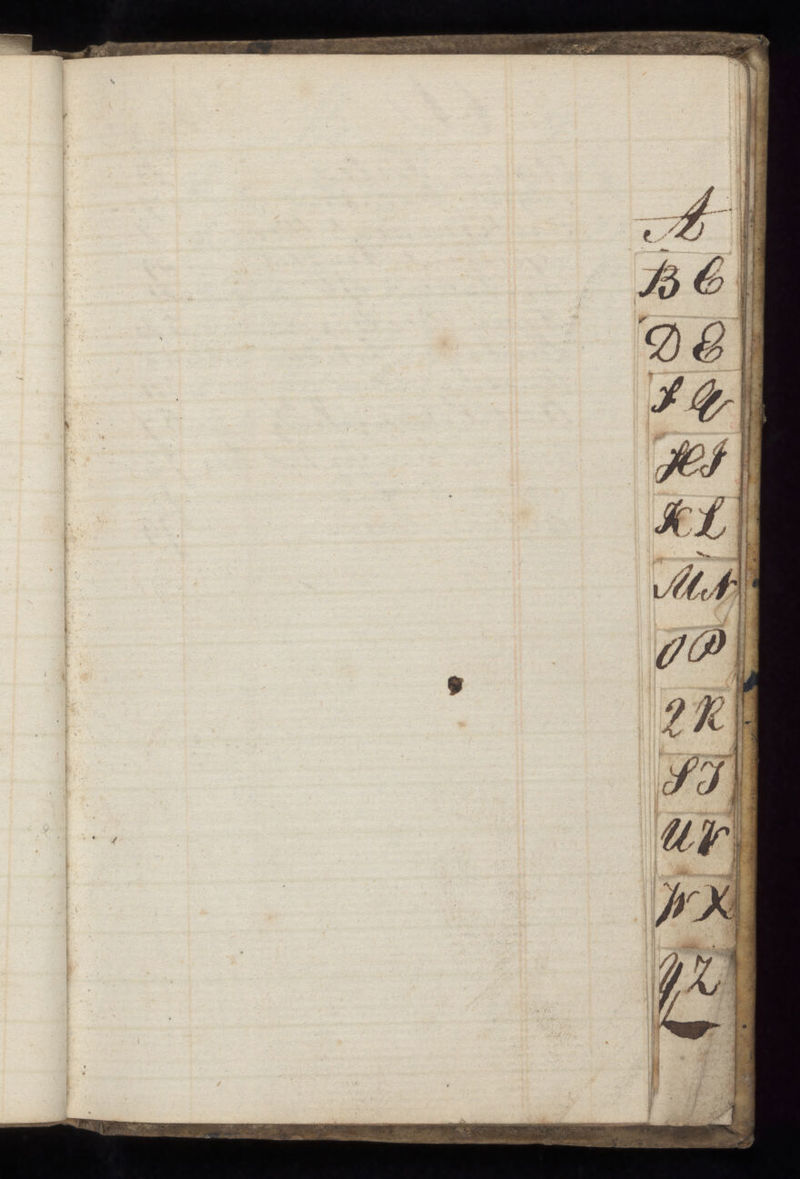 A
B C
D E
F G
H I
K L
M N
O P
Q R
S T
U V
W X
Y Z